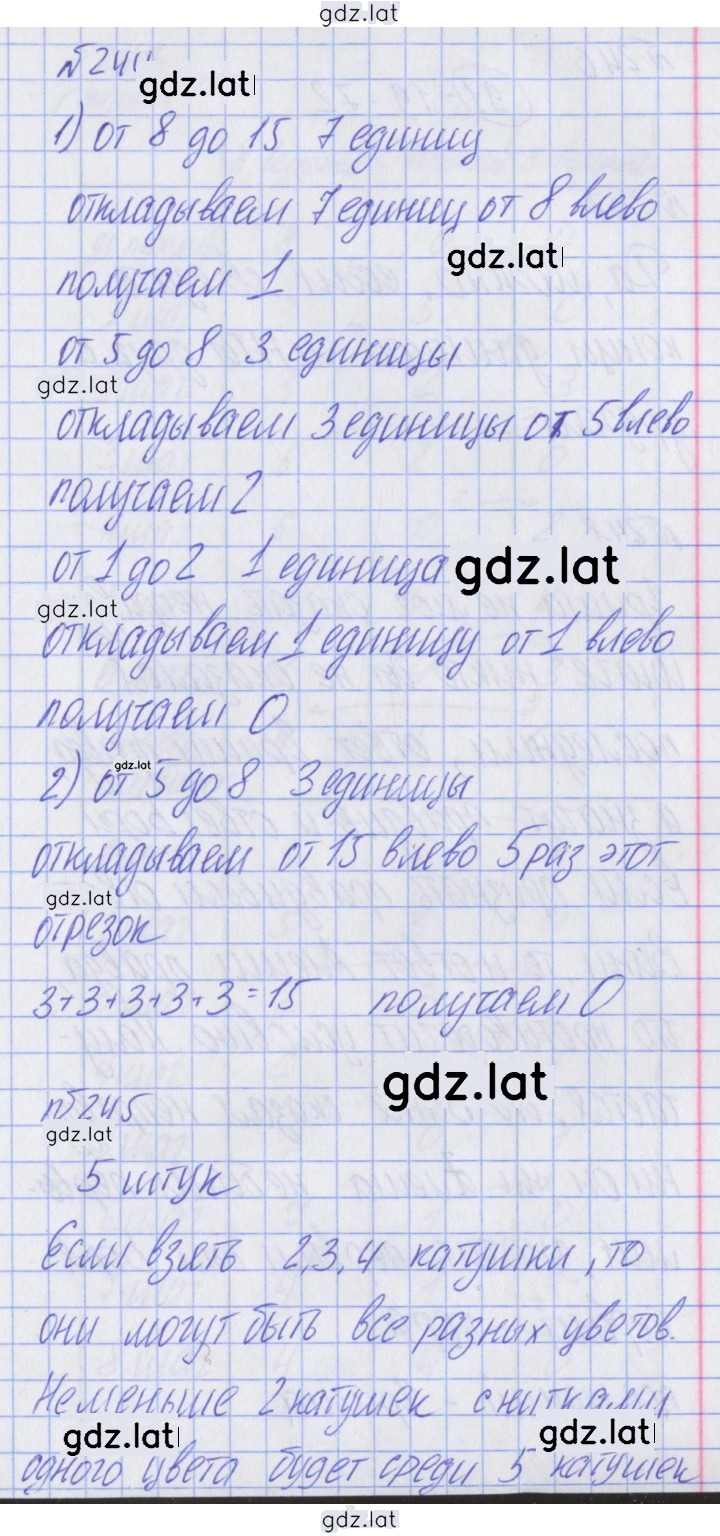 gdz.lat
№244
gdz.lat
1) от 8 до 15 7 единиц
откладываем 7 единиц от 8 влево
gdz.lat
получаем 1
от 5 до 8 3 единицы
gdz.lat
откладываем 3 единицы от 5 влево
получаем 2
от 1 до 2 1 единица
gdz.lat
gdz.lat
откладываем 1 единицу от 1 влево
получаем 0
gdz.lat
2) от 5 до 8 3 единицы
откладываем от 15 влево 5 раз этот
gdz.lat
отрезок
3+3+3+3+3=15 получаем 0
gdz.lat
№245
gdz.lat
5 штук
Если взять 2,3,4 катушки, то
они могут быть все разных цветов.
Не меньше 2 катушек с нитками
gdz.lat gdz.lat
одного цвета будет среди 5 катушек
gdz.lat